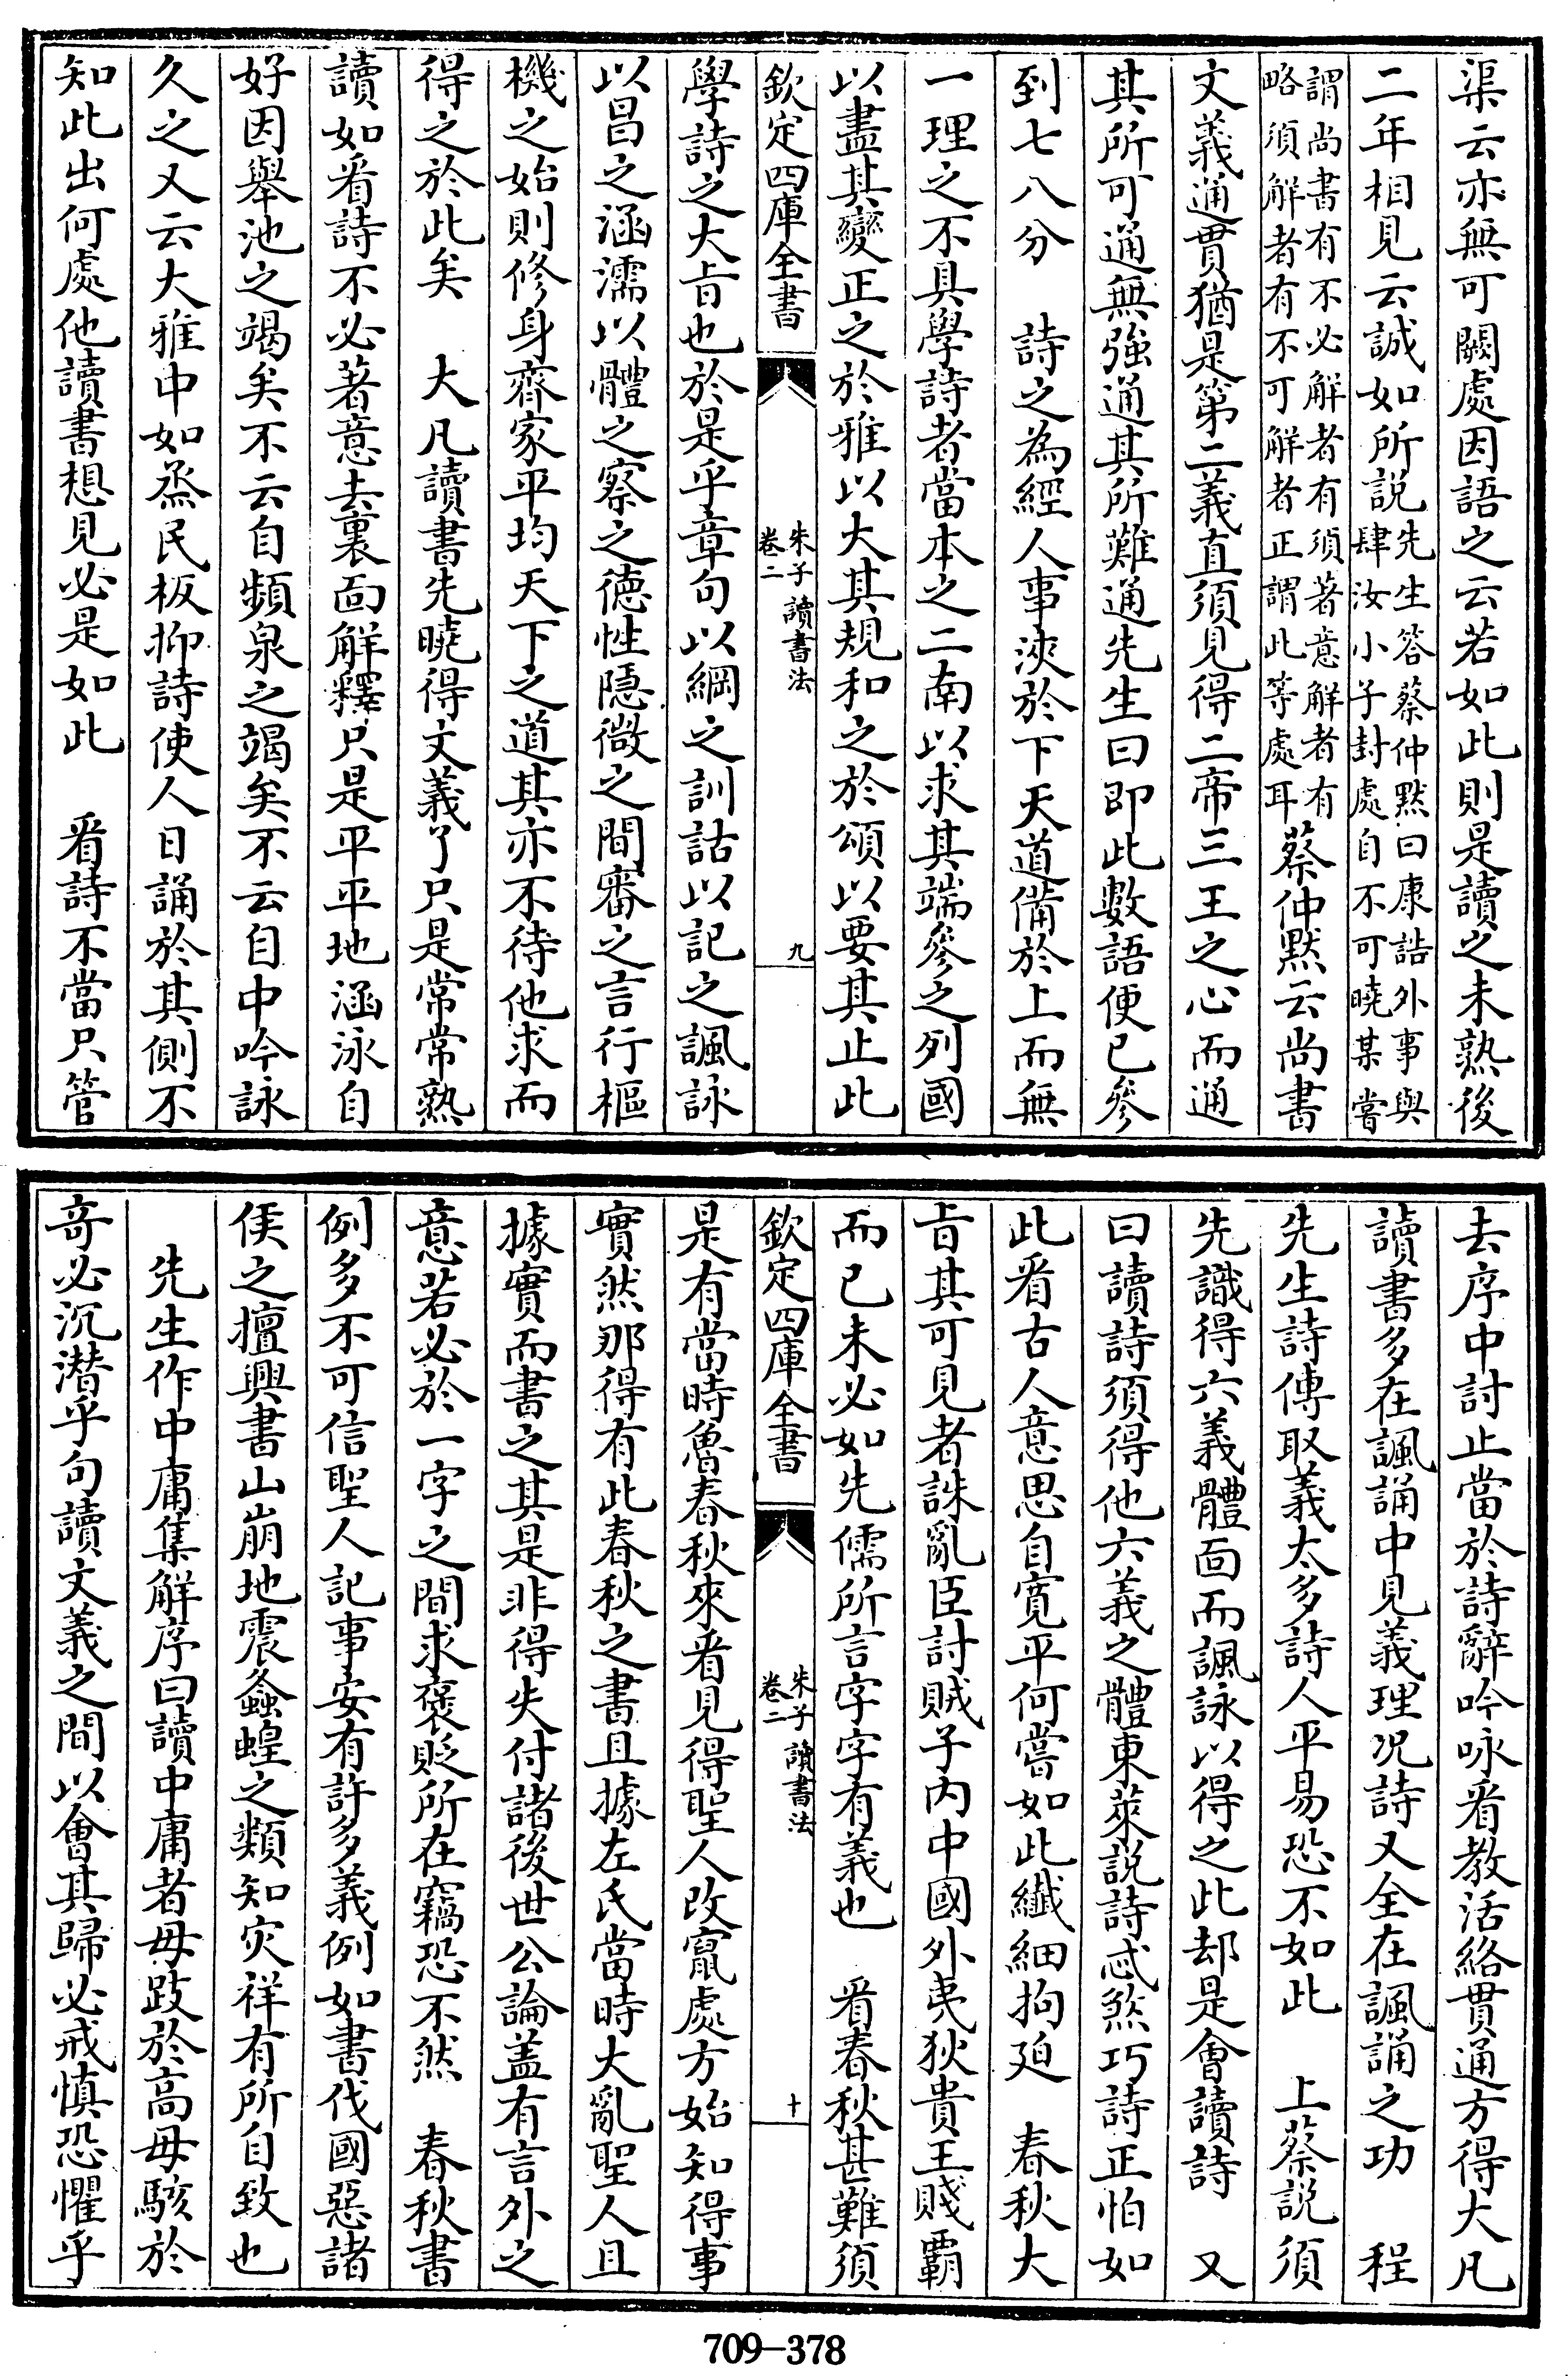 渠云亦無可闕處因語之云若如此則是讀之未熟後
二年相見云誠如所説先生答蔡仲默曰康誥外事與肆汝小子封處自不可曉某嘗
謂尚書有不必解者有須著意解者有略須解者有不可解者正謂此等處耳蔡仲默云尚書
文義通貫猶是第二義直須見得二帝三王之心而通
其所可通無強通其所難通先生曰即此數語便已參
到七八分　詩之為經人事浹於下天道備於上而無
一理之不具學詩者當本之二南以求其端參之列國
以盡其變正之於雅以大其規和之於頌以要其止此
欽定四庫全書
朱子讀書法
卷二
九
學詩之大旨也於是乎章句以綱之訓詁以記之諷詠
以昌之涵濡以體之察之德性隱微之間審之言行樞
機之始則修身齊家平均天下之道其亦不待他求而
得之於此矣　大凡讀書先曉得文義了只是常常熟
讀如看詩不必著意去裏面解釋只是平平地涵泳自
好因舉池之竭矣不云自頻泉之竭矣不云自中吟詠
久之又云大雅中如烝民板抑詩使人日誦於其側不
知此出何處他讀書想見必是如此　看詩不當只管
去序中討止當於詩辭吟咏看教活絡貫通方得大凡
讀書多在諷誦中見義理况詩又全在諷誦之功　程
先生詩傳取義太多詩人平易恐不如此　上蔡説須
先識得六義體面而諷詠以得之此却是會讀詩　又
曰讀詩須得他六義之體東萊説詩忒煞巧詩正怕如
此看古人意思自寛平何嘗如此纖細拘廹　春秋大
旨其可見者誅亂臣討賊子内中國外夷狄貴王賤霸
而已未必如先儒所言字字有義也　看春秋甚難須
欽定四庫全書
朱子讀書法
卷二
十
是有當時魯春秋來看見得聖人改竄處方始知得事
實然那得有此春秋之書且據左氏當時大亂聖人且
據實而書之其是非得失付諸後世公論盖有言外之
意若必於一字之間求褒貶所在竊恐不然　春秋書
例多不可信聖人記事安有許多義例如書伐國惡諸
侯之擅興書山崩地震螽蝗之類知灾祥有所自致也
先生作中庸集解序曰讀中庸者毋跂於高毋駭於
奇必沉潛乎句讀文義之間以會其歸必戒慎恐懼乎
709—378